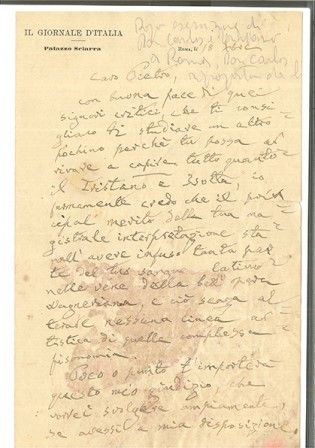 IL GIORNALE D'ITALIA
Palazzo Sciarra
ROMA, li 18
Caro Pietro,
con buona pace di quei
signori critici che ti consi-
gliano di studiare un altro
pochino perché tu possa ar-
rivare a capire tutto quanto
il Tristano e Isotta, io
fermamente credo che il prin-
cipal merito della tua ma-
gistrale interpretazione sta
nell' avere infuso tanta par-
te del tuo sangue latino
nelle vene della bell' opera
Wagneriana, e ciò senza al-
terare nessuna linea ar-
tistica di quella complessa
fisonomia.
Poco o punto t'importerà
questo mio giudizio, che
vorrei svolgere ampiamente,
se avessi a mia disposizione